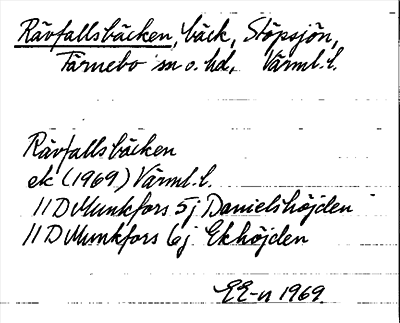 Rävfallsbäcken, bäck, Stöpsjön,
Färnebo sn o. hd, Värml. l.
Rävfallsbäcken
ek (1969) Värml. l.
11 D Munkfors 5 j Danielshöjden
11 D Munkfors 6 j Ekhöjden
EE-n 1969